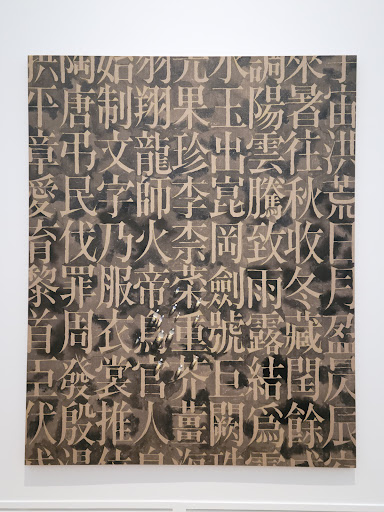 宇宙洪荒日月盈昃辰
來暑往秋收冬藏閏餘
調陽雲騰致雨露結爲
水玉出崑岡劍號巨闕
光果珍李柰菜重芥薑
羽翔龍師火帝鳥官人
始制文字乃服衣裳推
陶唐弔民伐罪周發殷湯
拱平章愛育黎首臣伏